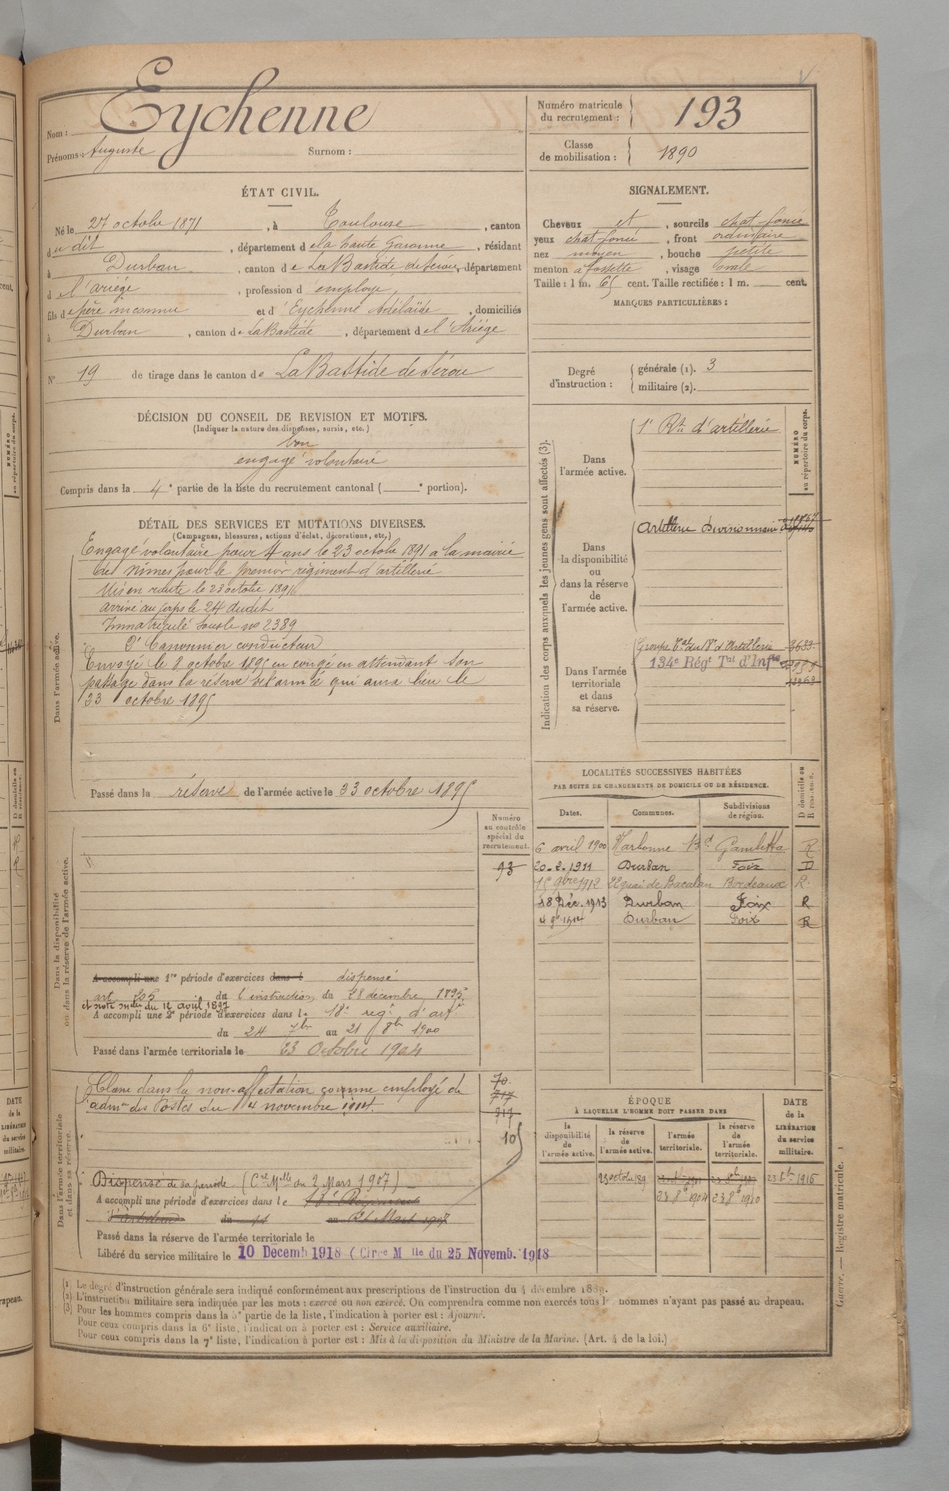 Nom : Eychenne
Prénoms : Auguste Surnom :
Numéro matricule du recrutement : 193
Classe de mobilisation : 1890
ÉTAT CIVIL.
Né le 27 octobre 1871, à Toulouse, canton
du dit, département de la haute Garonne, résidant
à Durban, canton de La Bastide de Sérou, département
d l'ariège, profession d'employé,
fils de père inconnu et d'Eychenne Adélaïde, domiciliés
à Durban, canton de La Bastide, département de l'Ariège
N° 19 de tirage dans le canton de La Bastide de Sérou
DÉCISION DU CONSEIL DE REVISION ET MOTIFS.
(Indiquer la nature des dispenses, sursis, etc.)
bon
engagé volontaire
Compris dans la 4e partie de la liste du recrutement cantonal ( e portion).
DÉTAIL DES SERVICES ET MUTATIONS DIVERSES.
(Campagnes, blessures, actions d'éclat, décorations, etc.)
Dans l'armée active.
Engagé volontaire pour 4 ans le 23 octobre 1891 a la mairie
de Nîmes pour le premier régiment d'artillerie
Mis en route le 23 octobre 1891
arrivé au corps le 24 dudit
Immatriculé sous le no 2389
2e Canonnier conducteur
Envoyé le 8 octobre 1895 en congé en attendant son
passage dans la réserve de l'armée qui aura lieu le
23 octobre 1895
Passé dans la réserve de l'armée active le 23 octobre 1895
Numéro au contrôle spécial du recrutement.
93
Dans la disponibilité ou dans la réserve de l'armée active.
A accompli une 1re période d'exercices dans l dispensé
art 205 de l'instruction du 28 décembre 1895
et note melle du 12 avril 1897
A accompli une 2e période d'exercices dans le 18e reg. d'art
du 24 7bre au 21 8bre 1900
Passé dans l'armée territoriale le 23 Octobre 1904
Dans l'armée territoriale et dans sa réserve.
Classé dans la non-affectation comme employé de
l'admon des Postes du 4 novembre 1914.
70
717
317
105
Dispensé de sa période (Cre Mlle du 2 Mars 1907)
A accompli une période d'exercices dans le 18e Régiment
d'artillerie du au Mars 1907
Passé dans la réserve de l'armée territoriale le
Libéré du service militaire le 10 Décemb 1918 (Circre Mlle du 25 Novemb. 1918
SIGNALEMENT.
Cheveux et, sourcils chat. foncé
yeux chat. foncé, front ordinaire
nez moyen, bouche petite
menton à fossette, visage ovale
Taille : 1 m. 65 cent. Taille rectifiée : 1 m. cent.
MARQUES PARTICULIÈRES :
Degré d'instruction : générale (1). 3
militaire (2).
Indication des corps auxquels les jeunes gens sont affectés (3).
NUMÉRO au répertoire du corps.
Dans l'armée active. 1er Rt d'artillerie
Dans la disponibilité ou dans la réserve de l'armée active. Artillerie Divisionnaire
Dans l'armée territoriale et dans sa réserve. Groupe Tal du 18e d'Artillerie 3633
134e Régt Tal d'Infie
LOCALITÉS SUCCESSIVES HABITÉES
PAR SUITE DE CHANGEMENTS DE DOMICILE OU DE RÉSIDENCE.
Dates. Communes. Subdivisions de région. D domicile ou R résidence.
6 avril 1900 Narbonne Bd Gambetta R
20-2-1911 Durban Foix D
15 9bre 1912 Quai de Bacalan Bordeaux R.
18 Déc. 1913 Durban Foix R
1914 Durban Foix R
ÉPOQUE
À LAQUELLE L'HOMME DOIT PASSER DANS
la disponibilité de l'armée active.
la réserve de l'armée active.
l'armée territoriale.
la réserve de l'armée territoriale.
DATE de la LIBÉRATION du service militaire.
23 octobre 189
23 8bre 1904
23 8bre 1910
23 8bre 1916
(1) Le degré d'instruction générale sera indiqué conformément aux prescriptions de l'instruction du 4 décembre 1889.
(2) L'instruction militaire sera indiquée par les mots : exercé ou non exercé. On comprendra comme non exercés tous les hommes n'ayant pas passé au drapeau.
(3) Pour les hommes compris dans la 5e partie de la liste, l'indication à porter est : Ajourné.
Pour ceux compris dans la 6e liste, l'indication à porter est : Service auxiliaire.
Pour ceux compris dans la 7e liste, l'indication à porter est : Mis à la disposition du Ministre de la Marine. (Art. 4 de la loi.)
Guerre. — Registre matricule. 1